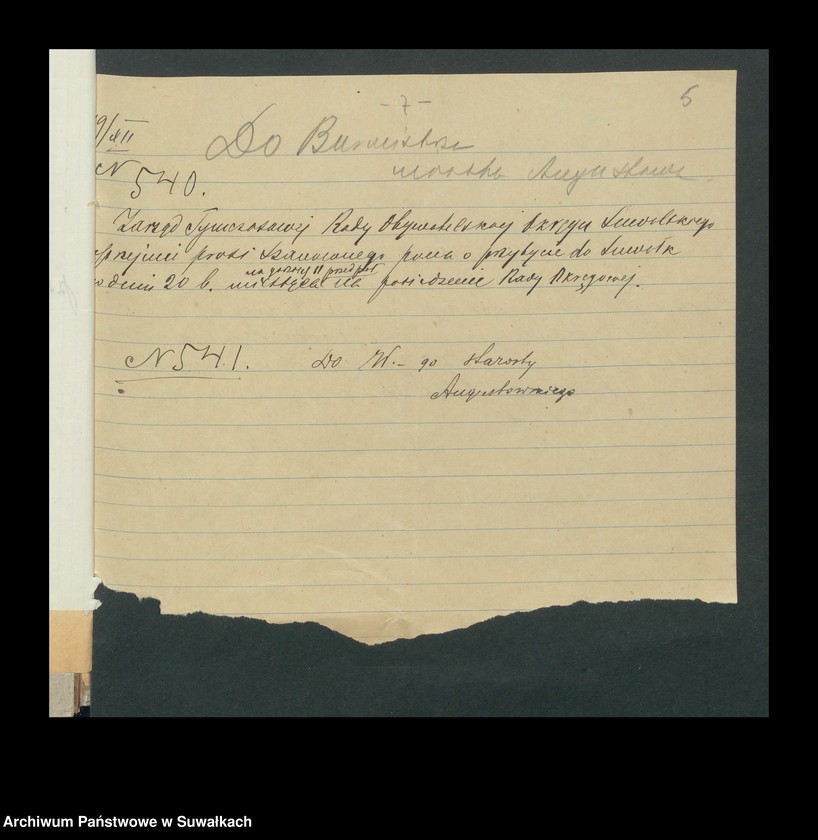 - 7 -
5
9/XII
Do Burmistrza
miasta Augustowa.
N 540.
Zarząd Tymczasowej Rady Obywatelskiej Okręgu Suwalskiego
uprzejmie prosi Szanownego pana o przybycie do Suwałk
na godzinę 11 przed poł.
w dniu 20 b. miesiąca na posiedzenie Rady Okręgowej.
N 541. Do W.-go Starosty
Augustowskiego
Archiwum Państwowe w Suwałkach